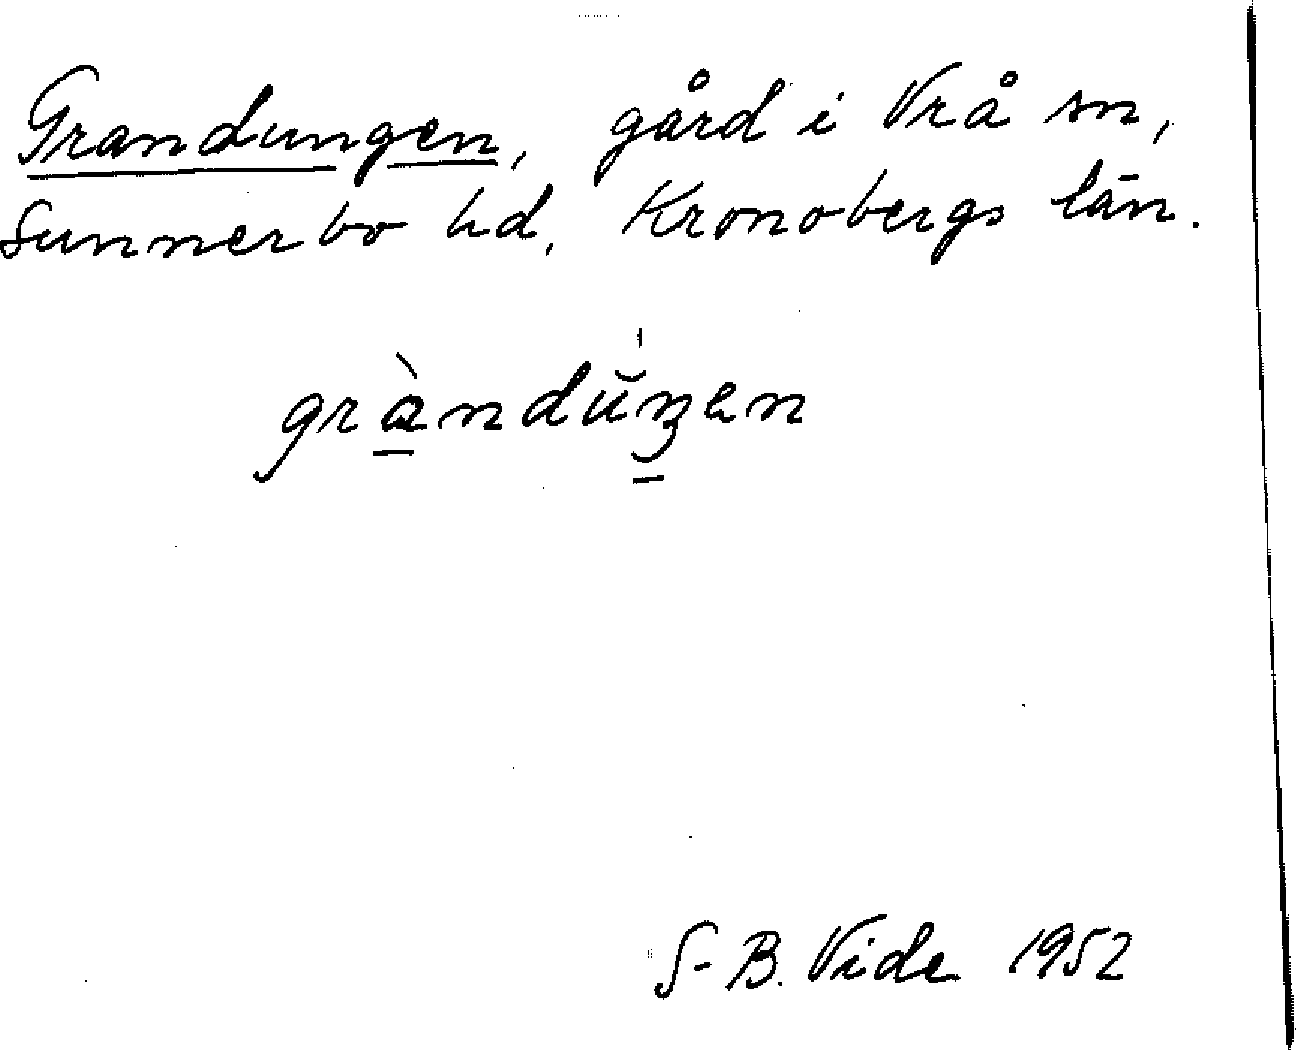 Grandungen, gård i Vrå sn,
Sunnerbo hd, Kronobergs län.
gràndŭŋen
S-B. Vide 1952